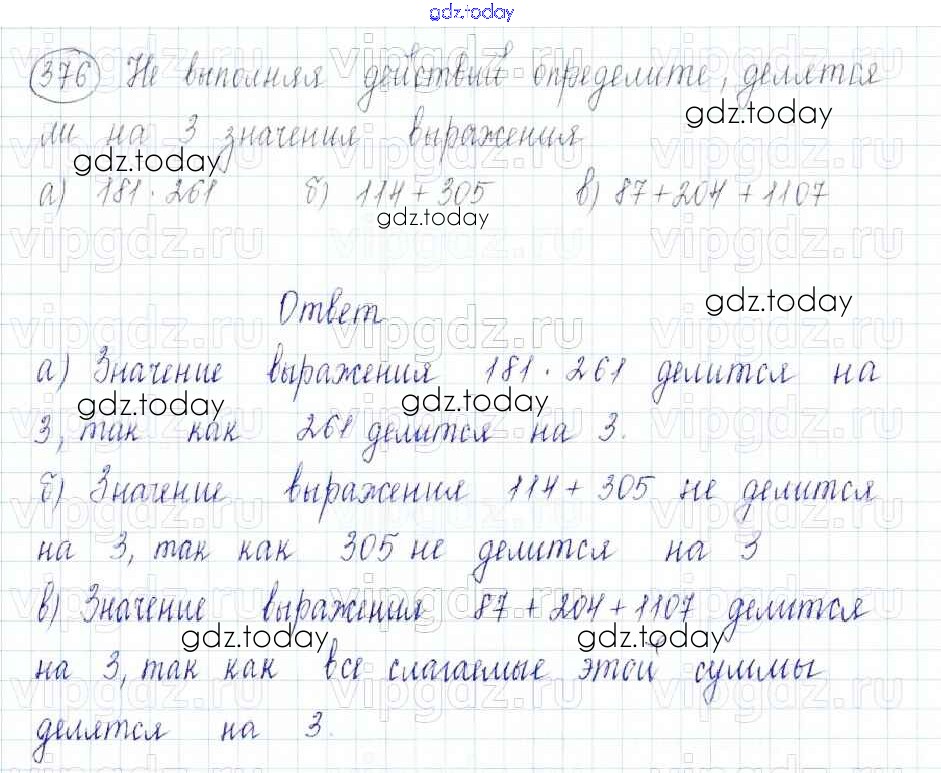 gdz.today
376 Не выполняя действий определите, делятся
ли на 3 значения выражения
gdz.today gdz.today
а) 181 · 261 б) 114 + 305 в) 87 + 204 + 1107
gdz.today
vipgdz.ru vipgdz.ru vipgdz.ru
Ответ
gdz.today
а) Значение выражения 181 · 261 делится на
gdz.today gdz.today
3, так как 261 делится на 3.
б) Значение выражения 114 + 305 не делится
на 3, так как 305 не делится на 3
в) Значение выражения 87 + 204 + 1107 делится
gdz.today gdz.today
на 3, так как все слагаемые этой суммы
делятся на 3.